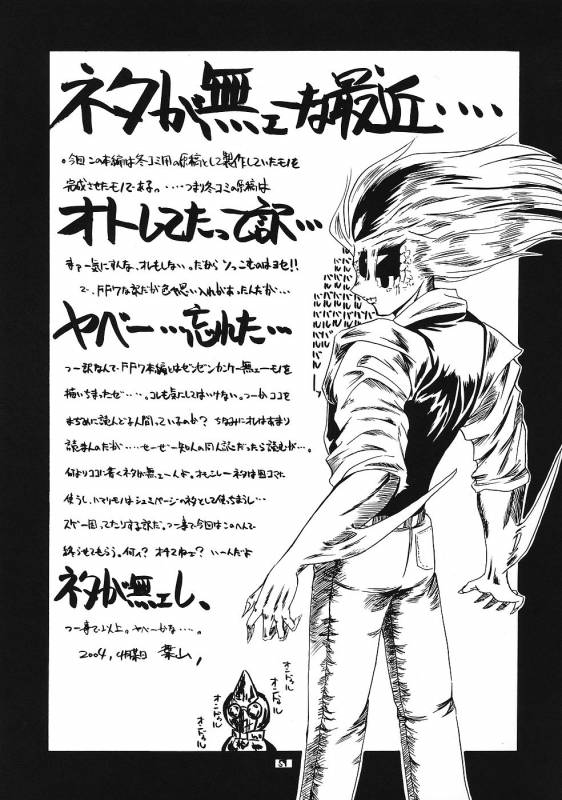 ネタが無ェーな最近‥‥
。今回この本編は冬コミ用の原稿として製作していたモノを
完成させたモノである。‥‥つまり冬コミの原稿は
オトしてたって訳…
まァー気にすんな、オレもしない。だから ソっこむのはヨセ!!
で、FF7な訳だが色々思い入れがあったんだが…
ヤベー…忘れた…
つー訳なんで、FF7本編とはゼンゼンカンケー無ェーモノを
描いちまったぜ‥‥。コレも気にしてはいけない。つーかココを
まじめに読んどる人間っているのか? ちなみにオレはあまり
読まんのだが‥‥ セーゼー知人の同人誌だったら読むが…。
何よりココに書くネタが無ェーんよ。オモシレーネタは四コマに
使うし、ハマリモノはシュミページのネタとして使っちまうし…
スゲー困ってたりする訳だ。つー事で今回はこのへんで
終らせてもらう。何ィ? オチてねェ? いーんだよ
ネタが無ェし、
つー事で以上。ヤベーかな‥‥。
2004, 4月某日 葉山,
バルバルバルバル
オンドゥル
オンドゥル
オンドゥル
51